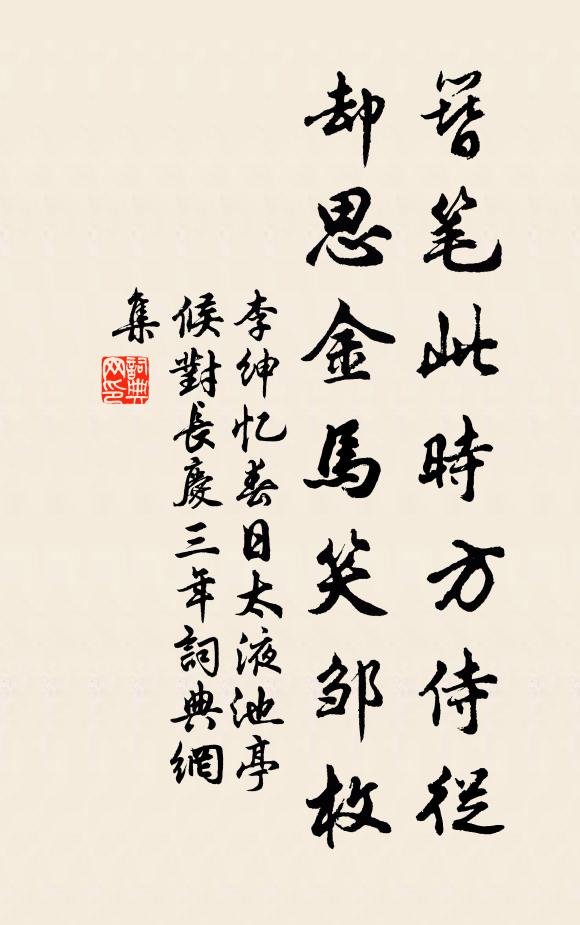 簪笔此時方侍從
却思金馬笑邹枚
李紳忆春日太液池亭
候對長慶三年詞典網
集
詞典网印